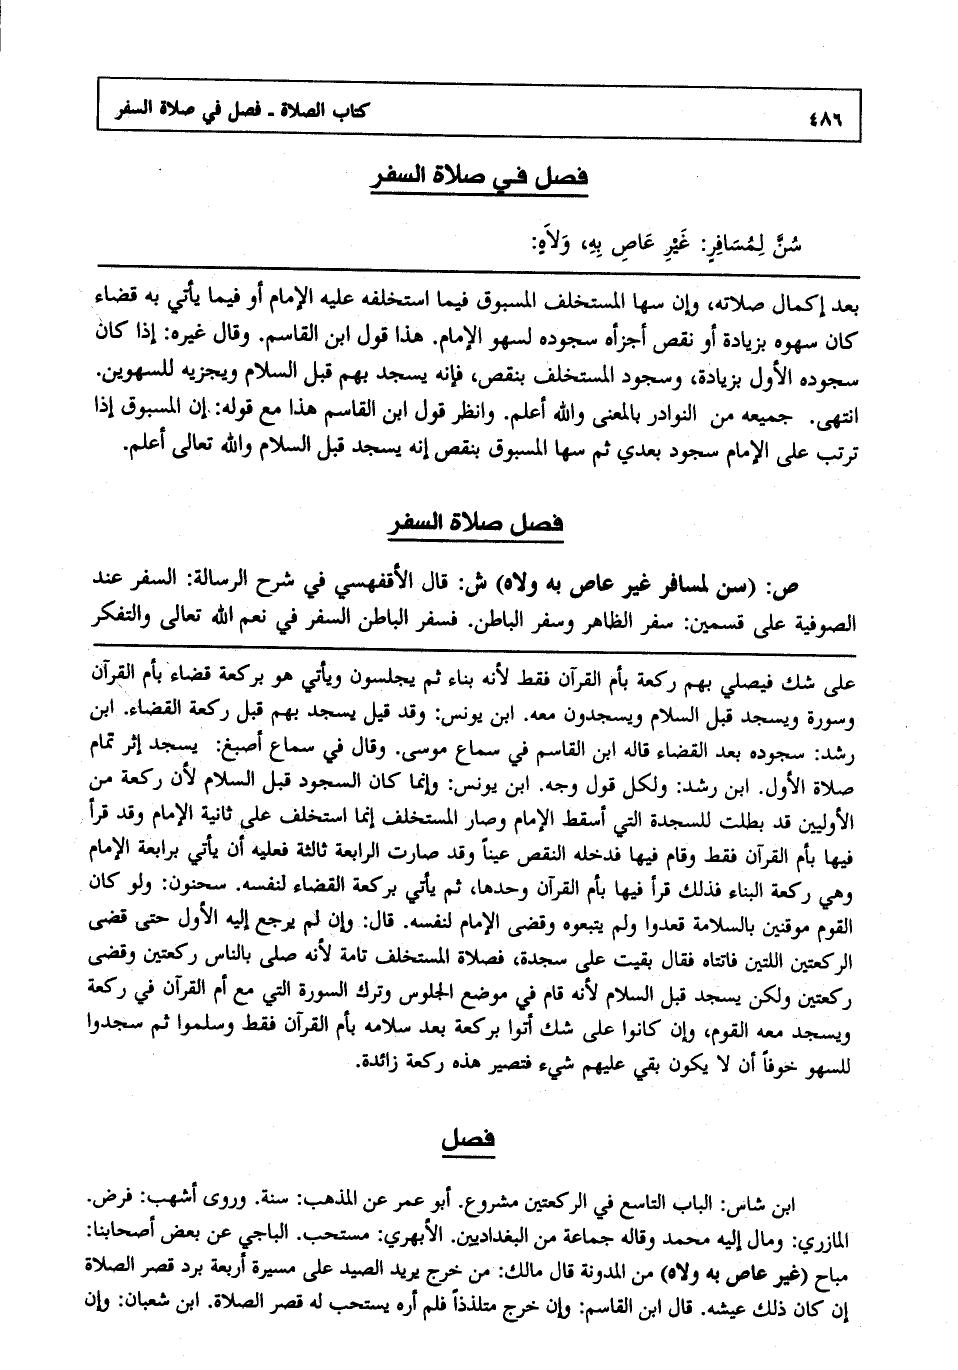 ٤٨٦
كتاب الصلاة ـ فصل في صلاة السفر
فصل في صلاة السفر
سُنَّ لِمُسَافِرٍ: غَيْرِ عَاصٍ بِهِ، وَلَاهٍ:
بعد إكمال صلاته، وإن سها المستخلف المسبوق فيما استخلفه عليه الإمام أو فيما يأتي به قضاء
كان سهوه بزيادة أو نقص أجزأه سجوده لسهو الإمام. هذا قول ابن القاسم. وقال غيره: إذا كان
سجوده الأول بزيادة، وسجود المستخلف بنقص، فإنه يسجد بهم قبل السلام ويجزيه للسهوين.
انتهى. جميعه من النوادر بالمعنى والله أعلم. وانظر قول ابن القاسم هذا مع قوله: إن المسبوق إذا
ترتب على الإمام سجود بعدي ثم سها المسبوق بنقص إنه يسجد قبل السلام والله تعالى أعلم.
فصل صلاة السفر
ص: (سن لمسافر غير عاص به ولاه) ش: قال الأقفهسي في شرح الرسالة: السفر عند
الصوفية على قسمين: سفر الظاهر وسفر الباطن. فسفر الباطن السفر في نعم الله تعالى والتفكر
على شك فيصلي بهم ركعة بأم القرآن فقط لأنه بناء ثم يجلسون ويأتي هو بركعة قضاء بأم القرآن
وسورة ويسجد قبل السلام ويسجدون معه. ابن يونس: وقد قيل يسجد بهم قبل ركعة القضاء. ابن
رشد: سجوده بعد القضاء قاله ابن القاسم في سماع موسى. وقال في سماع أصبغ: يسجد إثر تمام
صلاة الأول. ابن رشد: ولكل قول وجه. ابن يونس: وإنما كان السجود قبل السلام لأن ركعة من
الأوليين قد بطلت للسجدة التي أسقط الإمام وصار المستخلف إنما استخلف على ثانية الإمام وقد قرأ
فيها بأم القرآن فقط وقام فيها فدخله النقص عيناً وقد صارت الرابعة ثالثة فعليه أن يأتي برابعة الإمام
وهي ركعة البناء فذلك قرأ فيها بأم القرآن وحدها، ثم يأتي بركعة القضاء لنفسه. سحنون: ولو كان
القوم موقنين بالسلامة قعدوا ولم يتبعوه وقضى الإمام لنفسه. قال: وإن لم يرجع إليه الأول حتى قضى
الركعتين اللتين فاتتاه فقال بقيت على سجدة، فصلاة المستخلف تامة لأنه صلى بالناس ركعتين وقضى
ركعتين ولكن يسجد قبل السلام لأنه قام في موضع الجلوس وترك السورة التي مع أم القرآن في ركعة
ويسجد معه القوم، وإن كانوا على شك أتوا بركعة بعد سلامه بأم القرآن فقط وسلموا ثم سجدوا
للسهو خوفاً أن لا يكون بقي عليهم شيء فتصير هذه ركعة زائدة.
فصل
ابن شاس: الباب التاسع في الركعتين مشروع. أبو عمر عن المذهب: سنة. وروى أشهب: فرض.
المازري: ومال إليه محمد وقاله جماعة من البغداديين. الأبهري: مستحب. الباجي عن بعض أصحابنا:
مباح (غير عاص به ولاه) من المدونة قال مالك: من خرج يريد الصيد على مسيرة أربعة برد قصر الصلاة
إن كان ذلك عيشه. قال ابن القاسم: وإن خرج متلذذاً فلم أره يستحب له قصر الصلاة. ابن شعبان: وإن